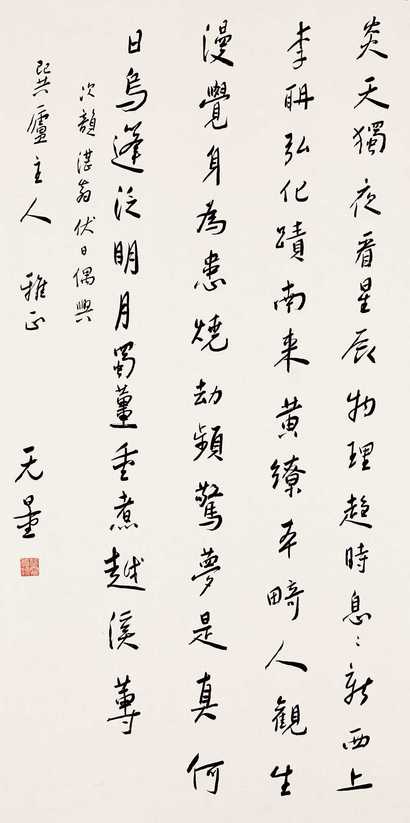 炎天獨夜看星辰物理趨時息〻新西上
李耼弘化蹟南来黄繚本畸人觀生
漫覺身為患燒劫頻驚夢是真何
日烏篷泛明月蜀薑重煮越溪蓴
次韻湛翁伏日偶興
巽廬主人 雅正
无量